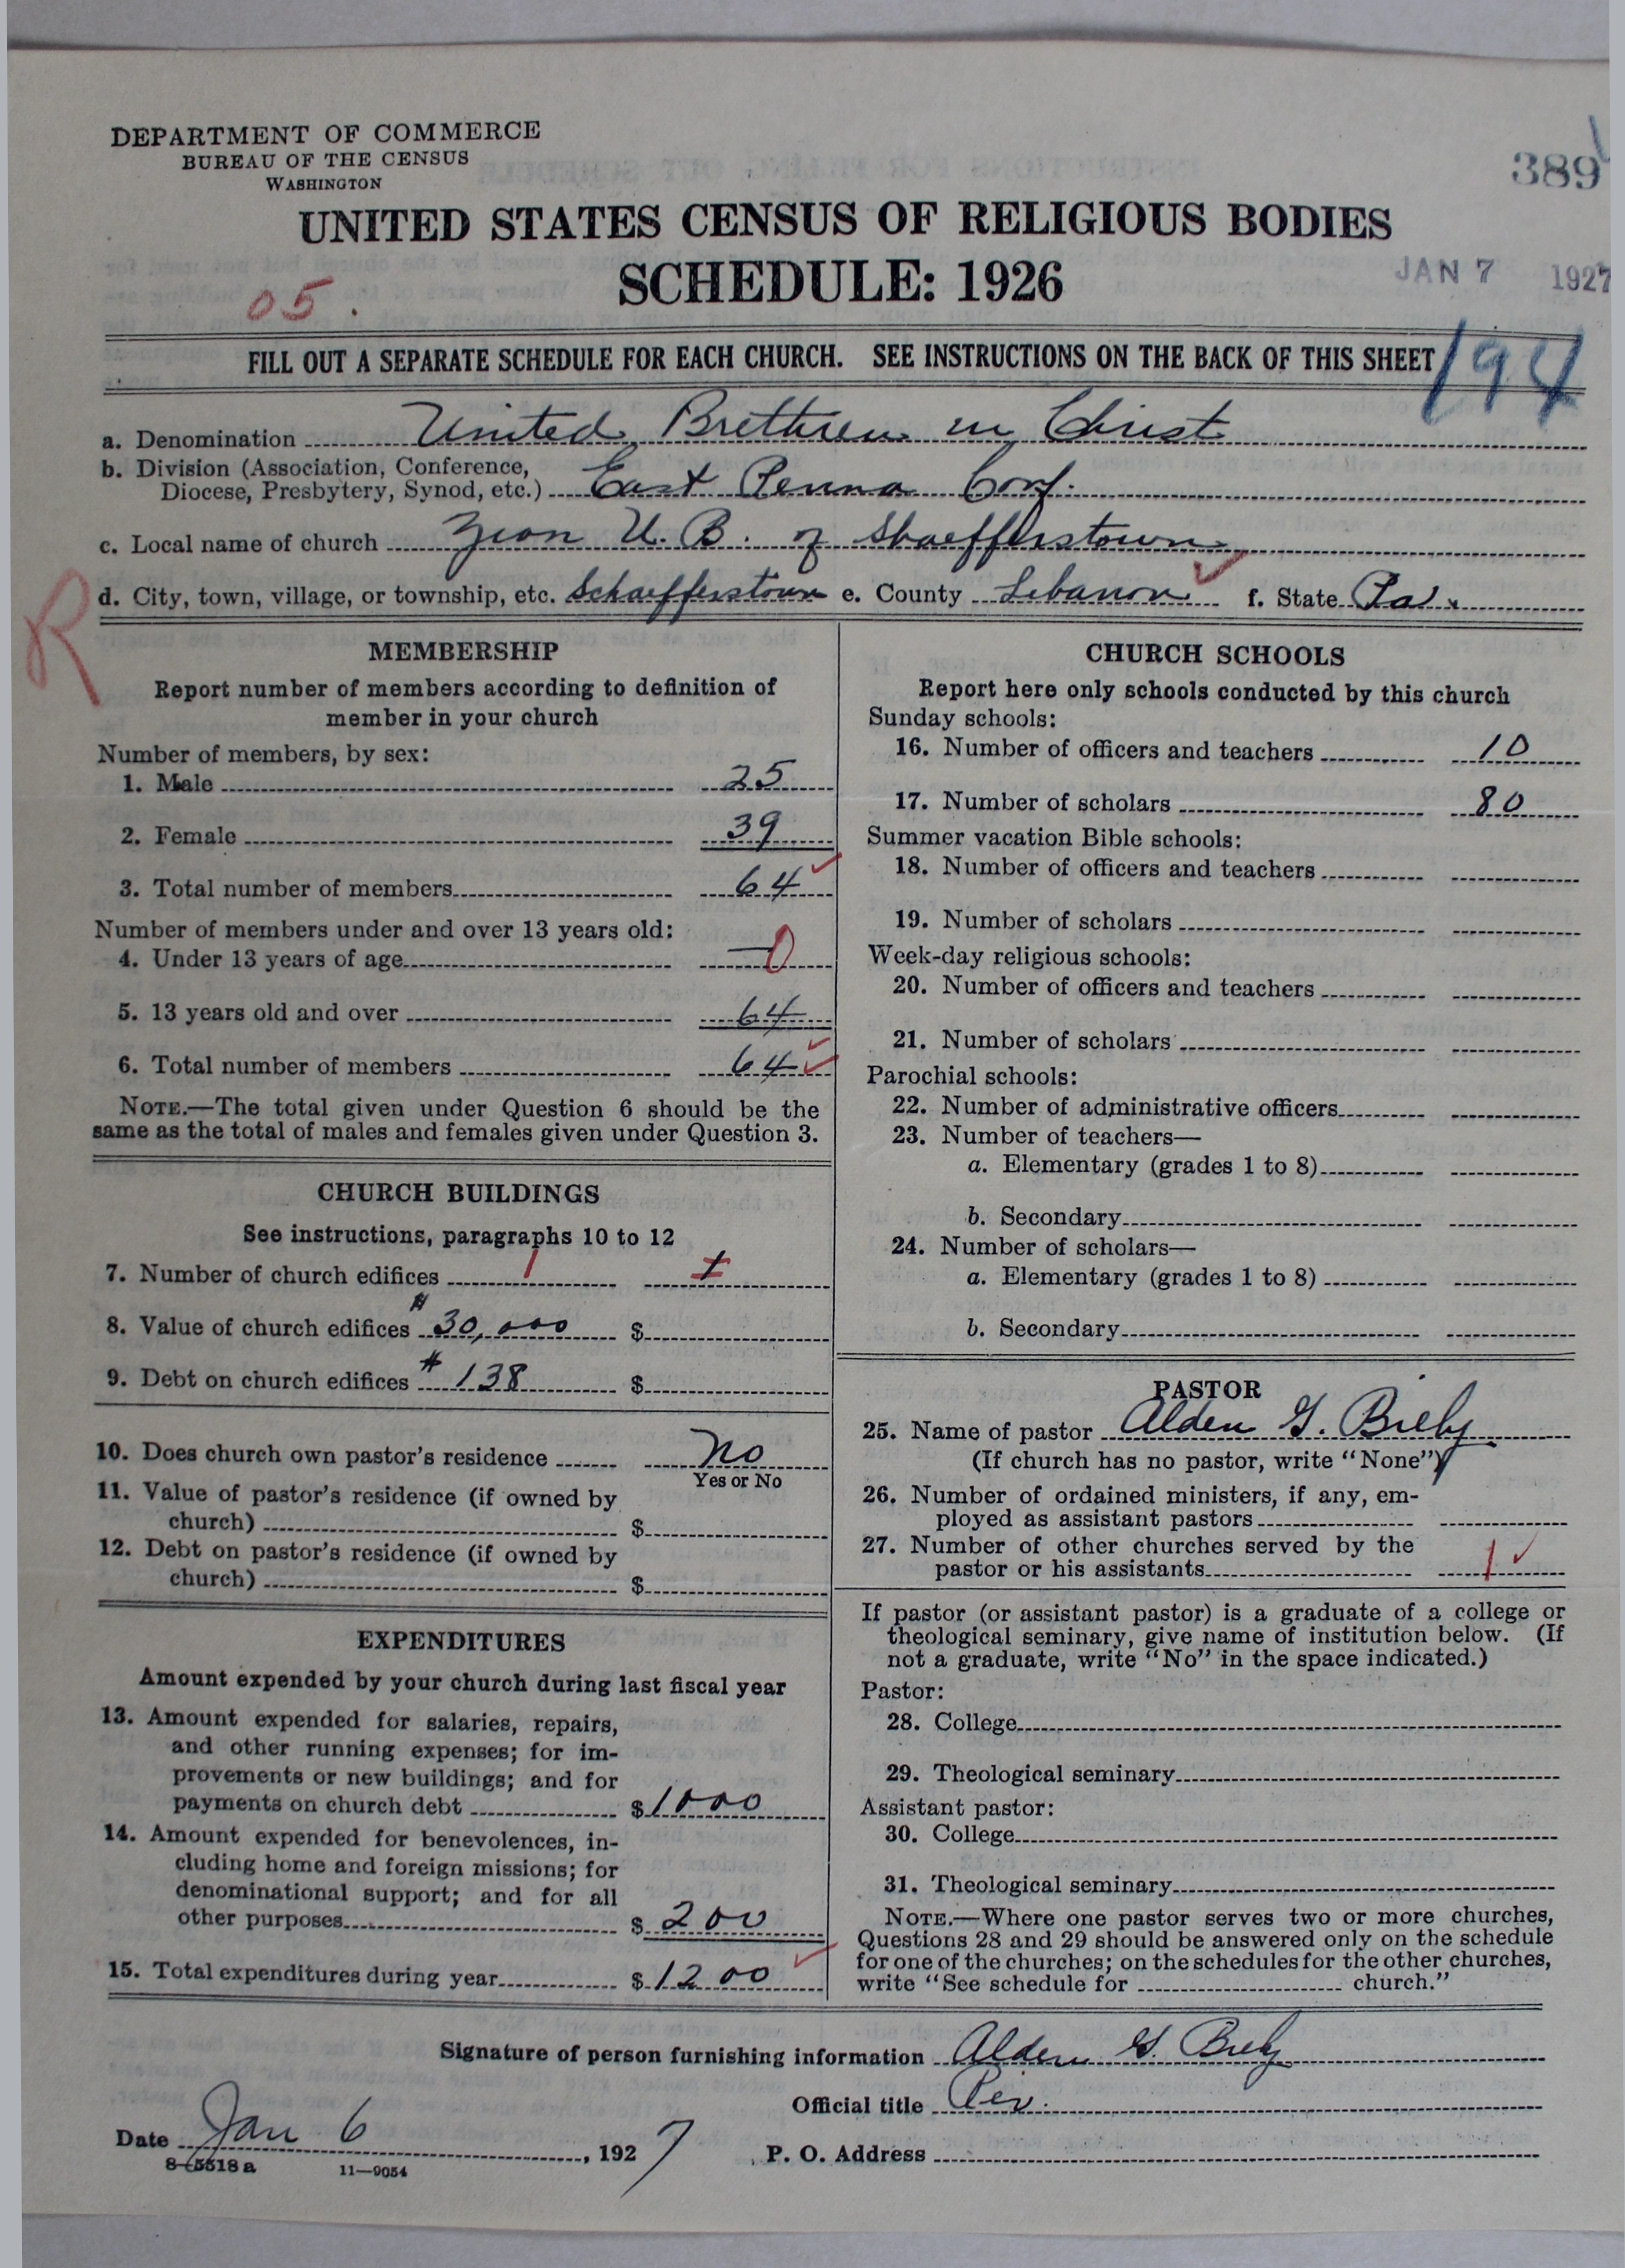 DEPARTMENT OF COMMERCE
BUREAU OF THE CENSUS
WASHINGTON
389
UNITED STATES CENSUS OF RELIGIOUS BODIES
SCHEDULE: 1926
JAN 7 1927
05.
FILL OUT A SEPARATE SCHEDULE FOR EACH CHURCH. SEE INSTRUCTIONS ON THE BACK OF THIS SHEET
194
a. Denomination United Brethren in Christ
b. Division (Association, Conference,
Diocese, Presbytery, Synod, etc.) East Penna Conf.
c. Local name of church Zion U. B. of Shaefferstown
d. City, town, village, or township, etc. Schaefferstown e. County Lebanon f. State Pa.
R
MEMBERSHIP
Report number of members according to definition of
member in your church
Number of members, by sex:
1. Male 25
2. Female 39
3. Total number of members 64
Number of members under and over 13 years old:
4. Under 13 years of age — 0
5. 13 years old and over 64
6. Total number of members 64
NOTE.—The total given under Question 6 should be the
same as the total of males and females given under Question 3.
CHURCH BUILDINGS
See instructions, paragraphs 10 to 12
7. Number of church edifices 1 1
8. Value of church edifices $ 30,000 $
9. Debt on church edifices $ 138 $
10. Does church own pastor's residence No
Yes or No
11. Value of pastor's residence (if owned by
church) $
12. Debt on pastor's residence (if owned by
church) $
EXPENDITURES
Amount expended by your church during last fiscal year
13. Amount expended for salaries, repairs,
and other running expenses; for im-
provements or new buildings; and for
payments on church debt $ 1000
14. Amount expended for benevolences, in-
cluding home and foreign missions; for
denominational support; and for all
other purposes $ 200
15. Total expenditures during year $ 1200
CHURCH SCHOOLS
Report here only schools conducted by this church
Sunday schools:
16. Number of officers and teachers 10
17. Number of scholars 80
Summer vacation Bible schools:
18. Number of officers and teachers
19. Number of scholars
Week-day religious schools:
20. Number of officers and teachers
21. Number of scholars
Parochial schools:
22. Number of administrative officers
23. Number of teachers—
a. Elementary (grades 1 to 8)
b. Secondary
24. Number of scholars—
a. Elementary (grades 1 to 8)
b. Secondary
PASTOR
25. Name of pastor Alden G. Biely
(If church has no pastor, write "None")
26. Number of ordained ministers, if any, em-
ployed as assistant pastors
27. Number of other churches served by the
pastor or his assistants 1
If pastor (or assistant pastor) is a graduate of a college or
theological seminary, give name of institution below. (If
not a graduate, write "No" in the space indicated.)
Pastor:
28. College
29. Theological seminary
Assistant pastor:
30. College
31. Theological seminary
NOTE.—Where one pastor serves two or more churches,
Questions 28 and 29 should be answered only on the schedule
for one of the churches; on the schedules for the other churches,
write "See schedule for church."
Signature of person furnishing information Alden G. Biely
Official title Rev.
Date Jan 6, 1927
P. O. Address
8—5518a 11—9054